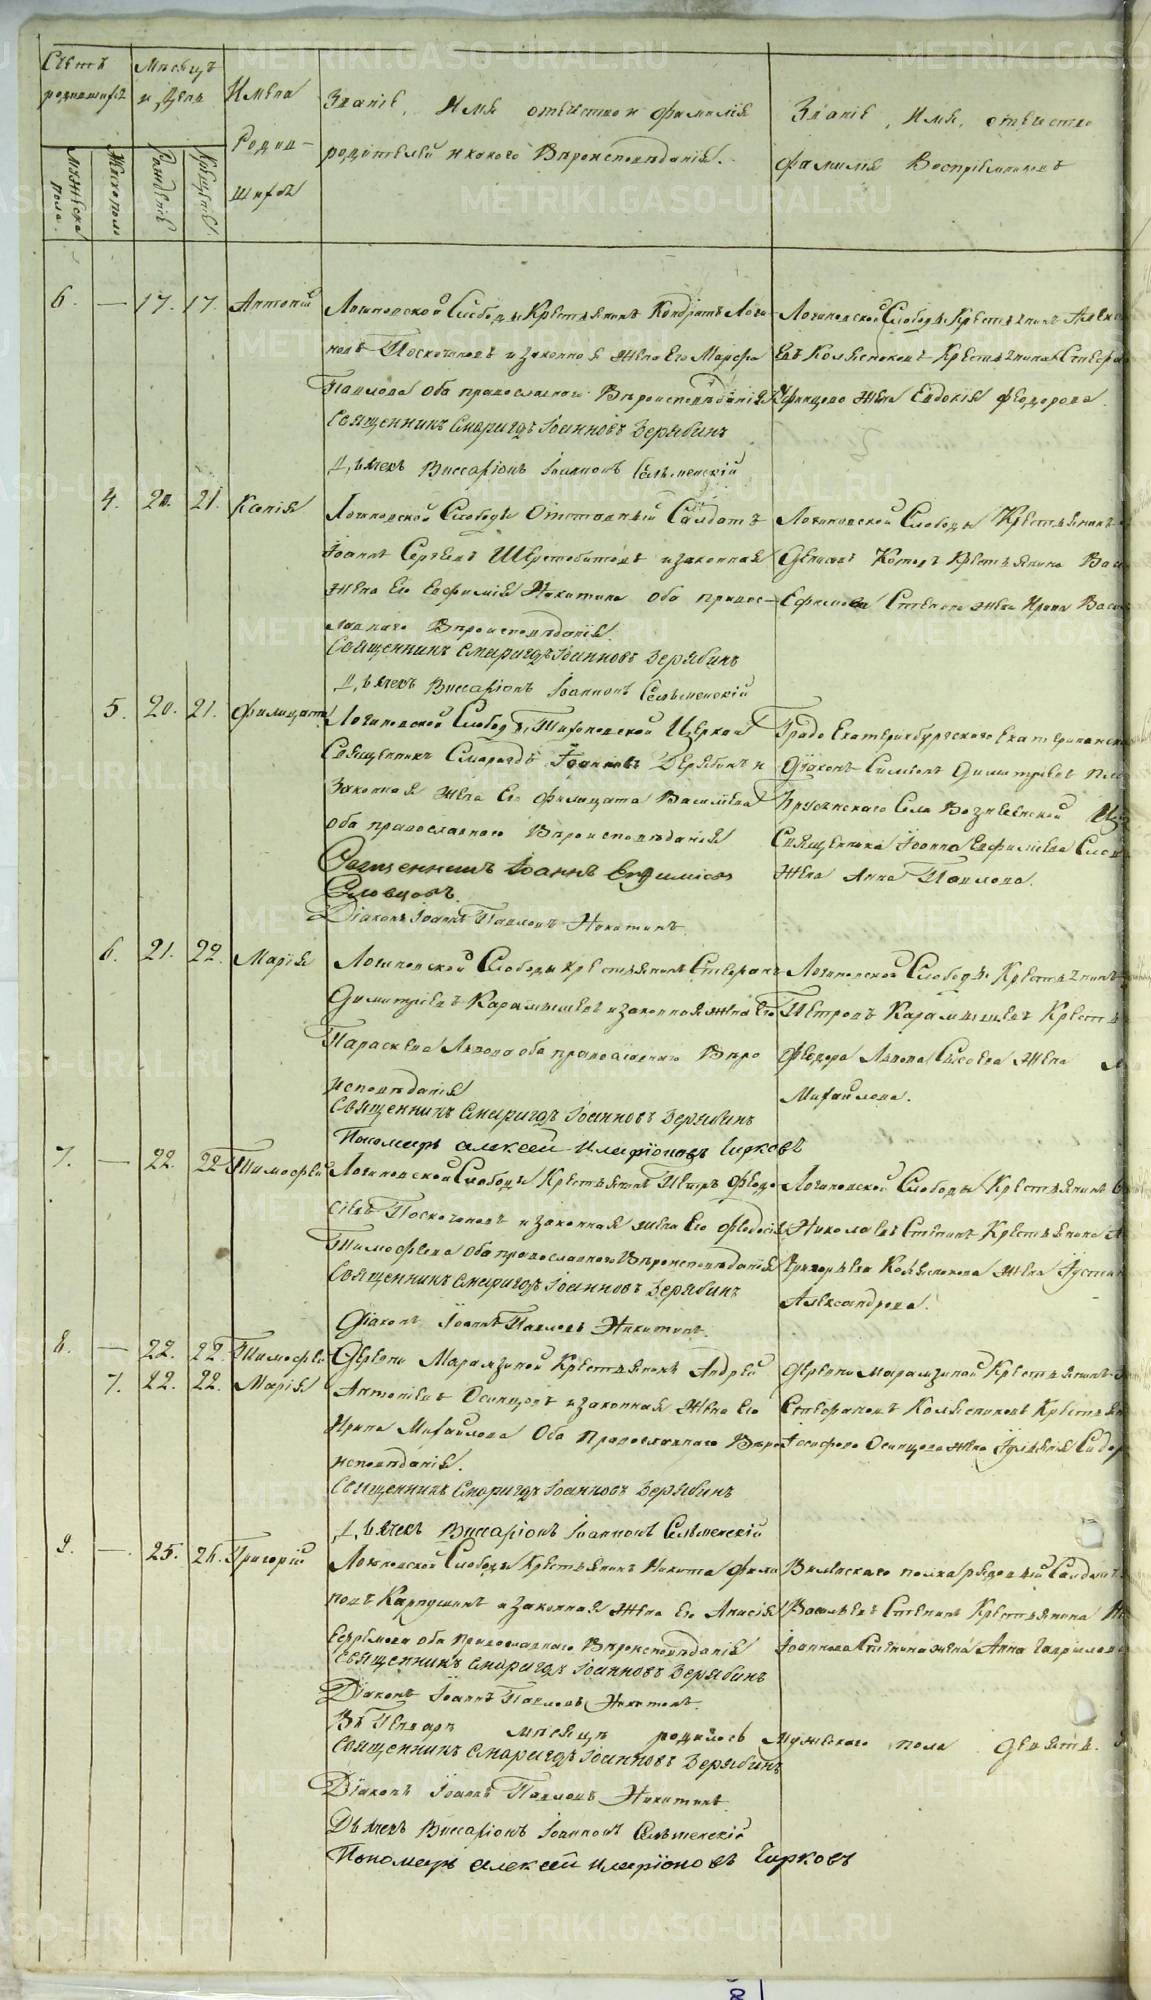 Счетъ родившихся
Мѣсяцъ и День
Имена Родившихся
Званіе, Имя отчество и фамилія
родителей и какого Вѣроисповѣданія.
Званіе, Имя, отчество
фамилія Воспріемниковъ
Мужеска пола.
Женска пола
Рожденіе
Крещеніе
6. — 17. 17. Антоній
Логиновской Слободы Крестьянинъ Кондратъ Логи-
новъ Поскочиновъ и законная жена Его Марфа
Павлова оба православнаго Вѣроисповѣданія
Священникъ Смарагдъ Іоанновъ Дерябинъ
Дьячекъ Виссаріонъ Іоанновъ Сельменскій
Логиновской Слободы Крестьянинъ Алекс
евъ Колясниковъ Крестьянина Стефа
жена Евдокія Феодорова.
4. 20. 21. Ксенія
Логиновской Слободы Отставный Салдатъ
Іоаннъ Сергеевъ Шерстобитовъ и законная
жена Его Евфимія Никитина оба правос-
лавнаго Вѣроисповѣданія.
Священникъ Смарагдъ Іоанновъ Дерябинъ
Дьячекъ Виссаріонъ Іоанновъ Сельменскій
Логиновской Слободы Крестьянинъ
Денисовъ Котовъ Крестьянина Васи
Ефимова Степина жена Ирина Васи
5. 20. 21. Филицата
Логиновской Слободы, Тихоновской Церкви
Священникъ Смарагдъ Іоанновъ Дерябинъ и
Законная жена Его Филицата Василіева
оба православнаго Вѣроисповѣданія
Священникъ Іоаннъ Евфиміевъ
Словцовъ.
Діаконъ Іоаннъ Павловъ Никитинъ.
Града Екатеринбургскаго Екатерининска
Діаконъ Симеонъ Димитріевъ
Бруснскаго Села Вознесенской
Священника Іоанна Евфиміева Слов
жена Анна Павлова.
6. 21. 22. Марія
Логиновской Слободы Крестьянинъ Стефанъ
Димитріевъ Карамышевъ и законная жена Его
Параскева Львова оба православнаго Вѣро
исповѣданія
Священникъ Смарагдъ Іоанновъ Дерябинъ
Пономарь Алексей Иларіоновъ Чирковъ
Логиновской Слободы Крестьянинъ
Петровъ Карамышевъ Крестья
Федора Львова Сысоева жена
Михайлова.
7. — 22. 22 Тимофей
Логиновской Слободы Крестьянинъ Петръ Федо
сѣевъ Поскочиновъ и законная жена Его Федосія
Тимофеева оба православнаго Вѣроисповѣданія
Священникъ Смарагдъ Іоанновъ Дерябинъ
Діаконъ Іоаннъ Павловъ Никитинъ.
Логиновской Слободы Крестьянинъ
Николаевъ Степинъ Крестьянина
Григорьева Колясникова жена Іустин
Александрова.
8. — 22. 22. Тимофей
7. 22. 22. Марія
Деревни Марамзиной Крестьянинъ Андрей
Антоніевъ Осинцовъ и законная жена Его
Ирина Михайлова Оба Православнаго Вѣро
исповѣданія.
Священникъ Смарагдъ Іоанновъ Дерябинъ
Дьячекъ Виссаріонъ Іоанновъ Сельменскій
Деревни Марамзиной Крестьянинъ
Стефановъ Колясниковъ Крестьян
Іосифова Осинцова жена Іуліанія Сидор
9. — 25. 26. Григорій
Логиновской Слободы Крестьянинъ Никита Фили
повъ Карпушинъ и законная жена Его Анисія
Ефремова оба Православнаго Вѣроисповѣданія
Священникъ Смарагдъ Іоанновъ Дерябинъ
Діаконъ Іоаннъ Павловъ Никитинъ.
Виленскаго полка рядовый Салдатъ
Васильевъ Степинъ Крестьянина
Іоаннова Степина жена Анна Гаврилова
Въ Генварѣ мѣсяцѣ родилось мужескаго пола девять.
Священникъ Смарагдъ Іоанновъ Дерябинъ
Діаконъ Іоаннъ Павловъ Никитинъ.
Дьячекъ Виссаріонъ Іоанновъ Сельменскій
Пономарь Алексей Иларіоновъ Чирковъ
METRIKI.GASO-URAL.RU